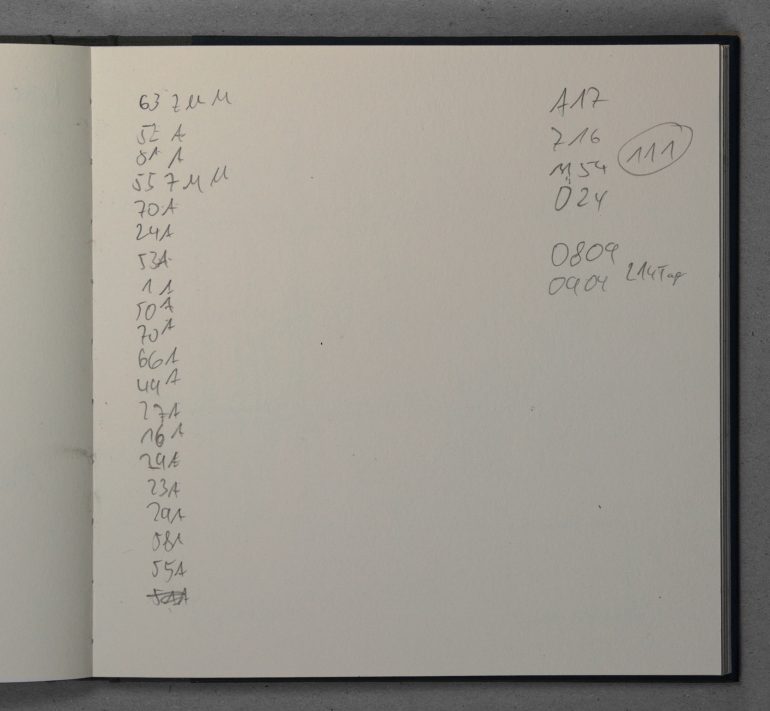 63 Z M M
52 A
81 A
55 Z M M
70 A
24 A
53 A
1 1
50 A
70 A
66 A
44 A
27 A
16 A
29 A
23 A
29 A
58 A
55 A
A17
Z16
M54
Ö24
111
0809
0904 214 Tage